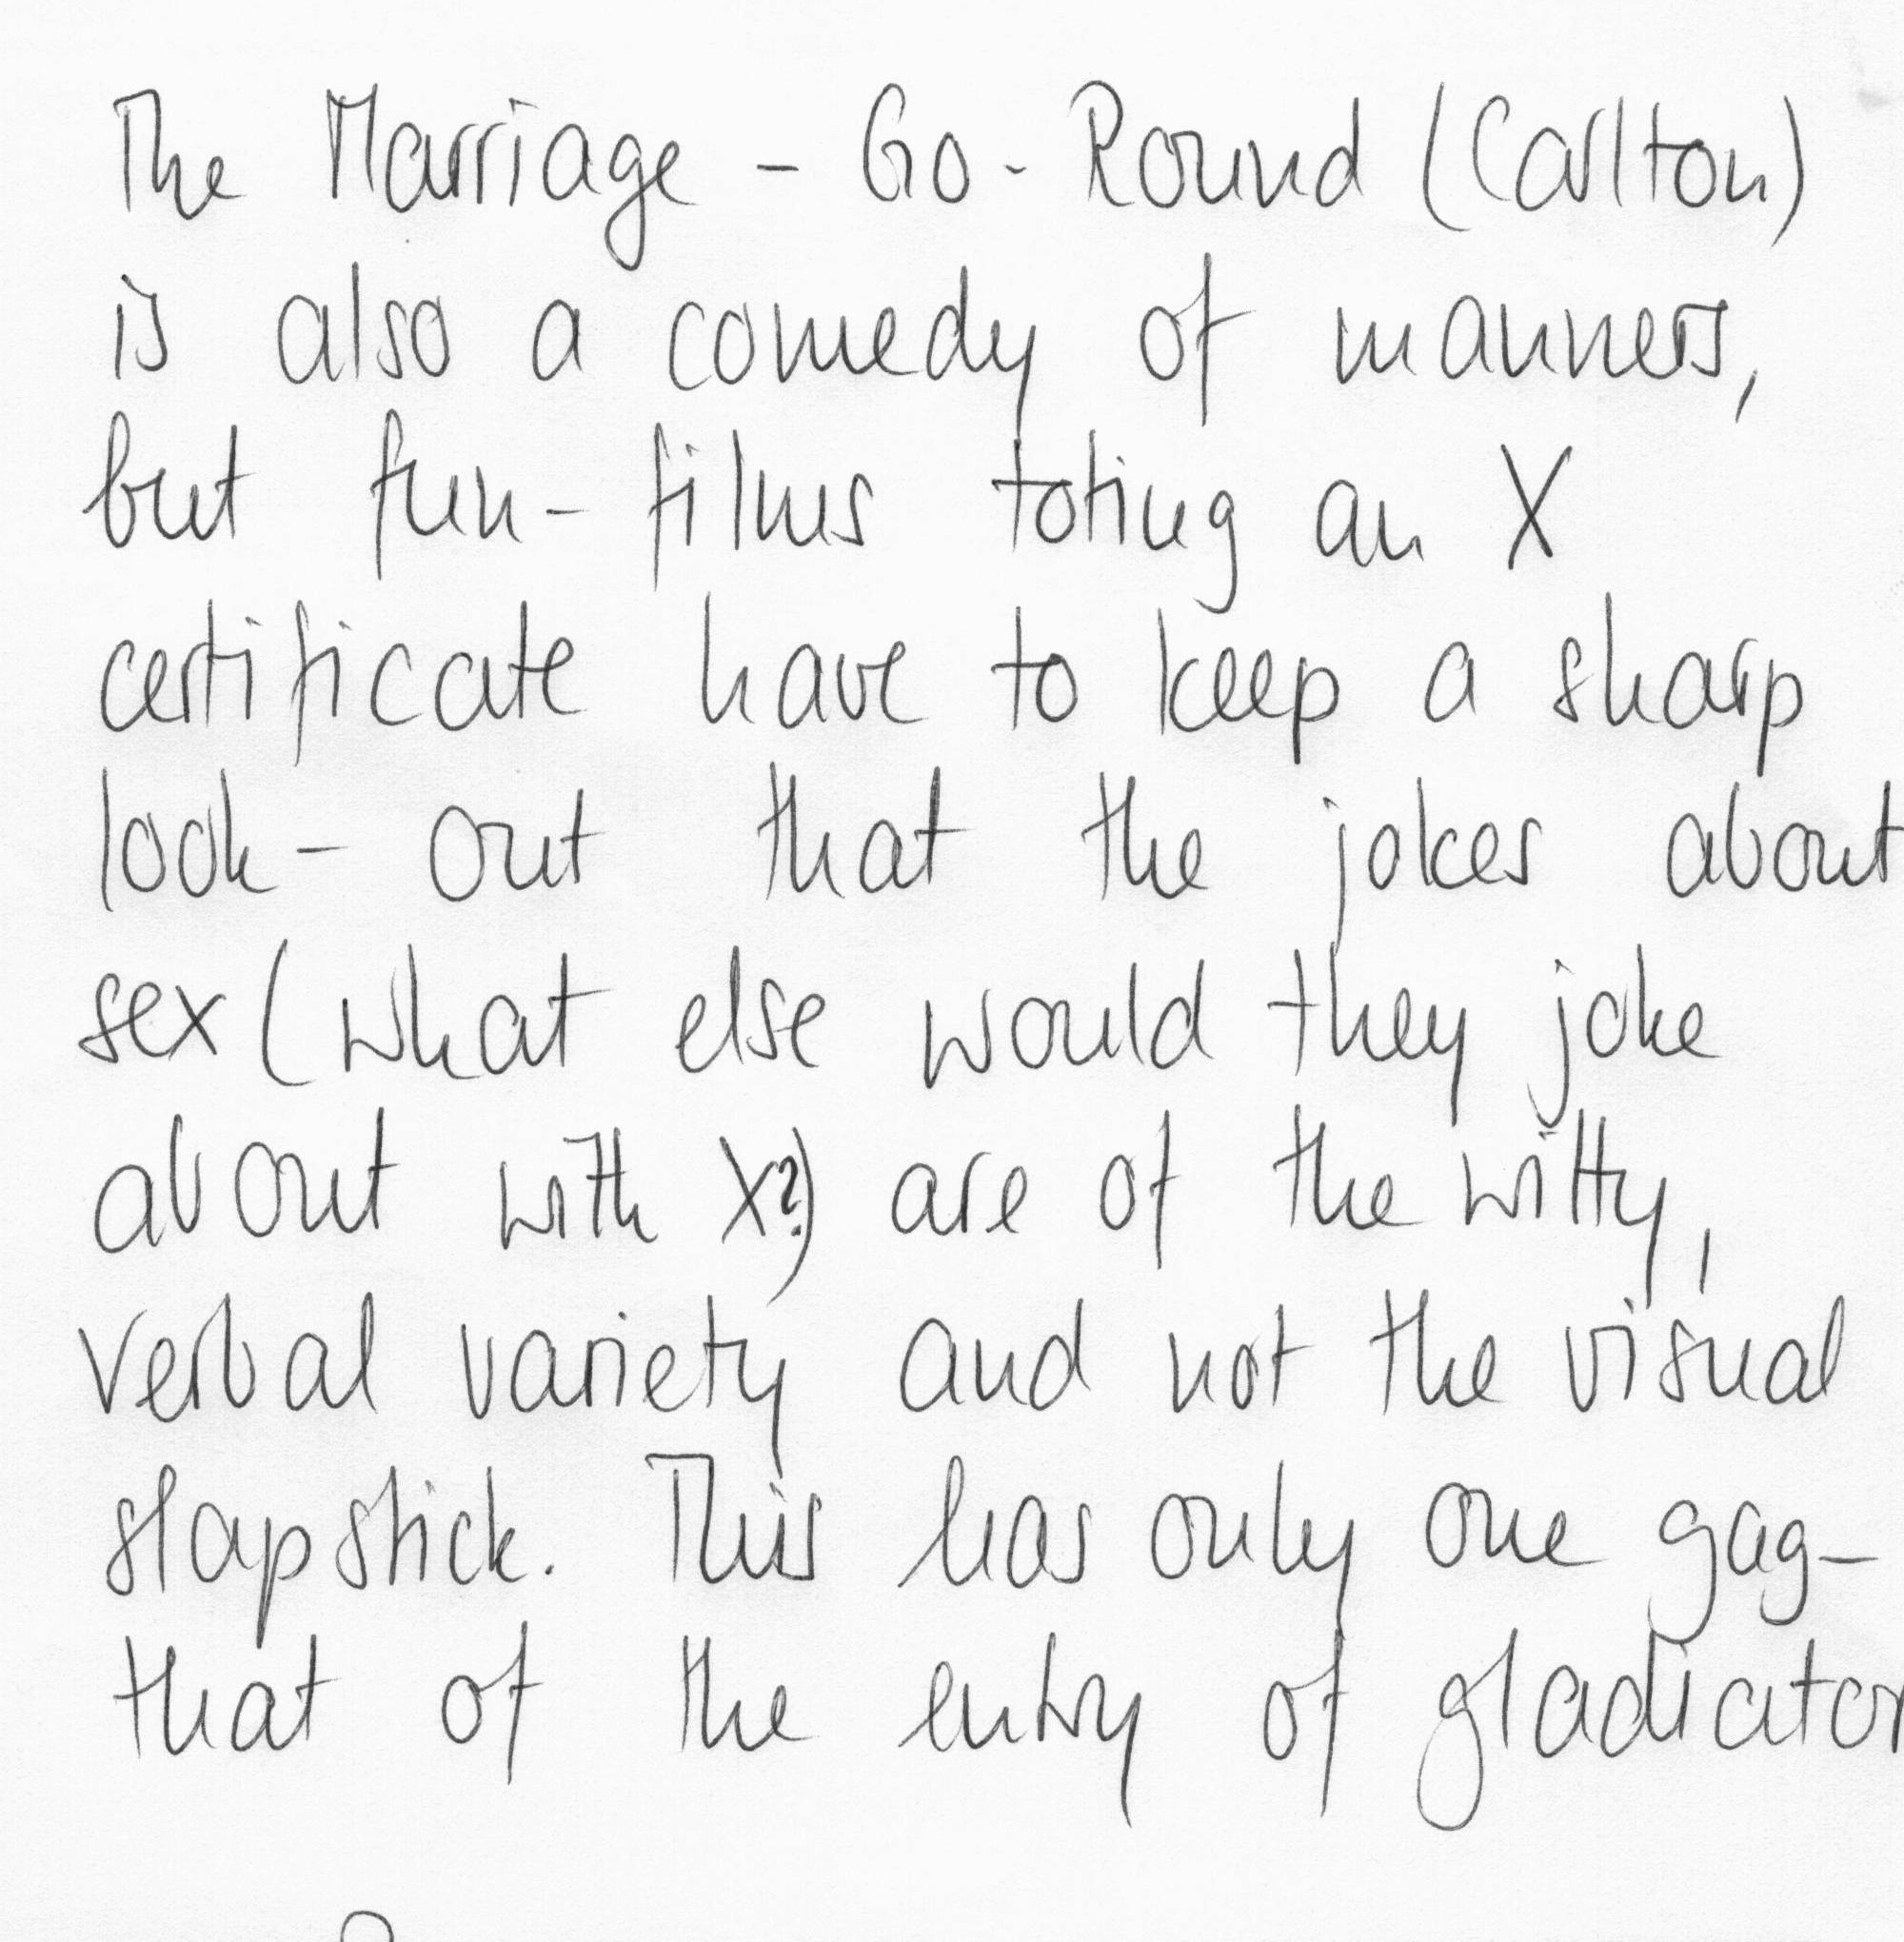 The Marriage - Go - Round (Carlton)
is also a comedy of manners,
but fun- films toting an X
certificate have to keep a sharp
look- out that the jokes about
sex (what else would they joke
about with X?) are of the witty,
verbal variety and not the visual
slapstick. This has only one gag-
that of the entry of gladiator